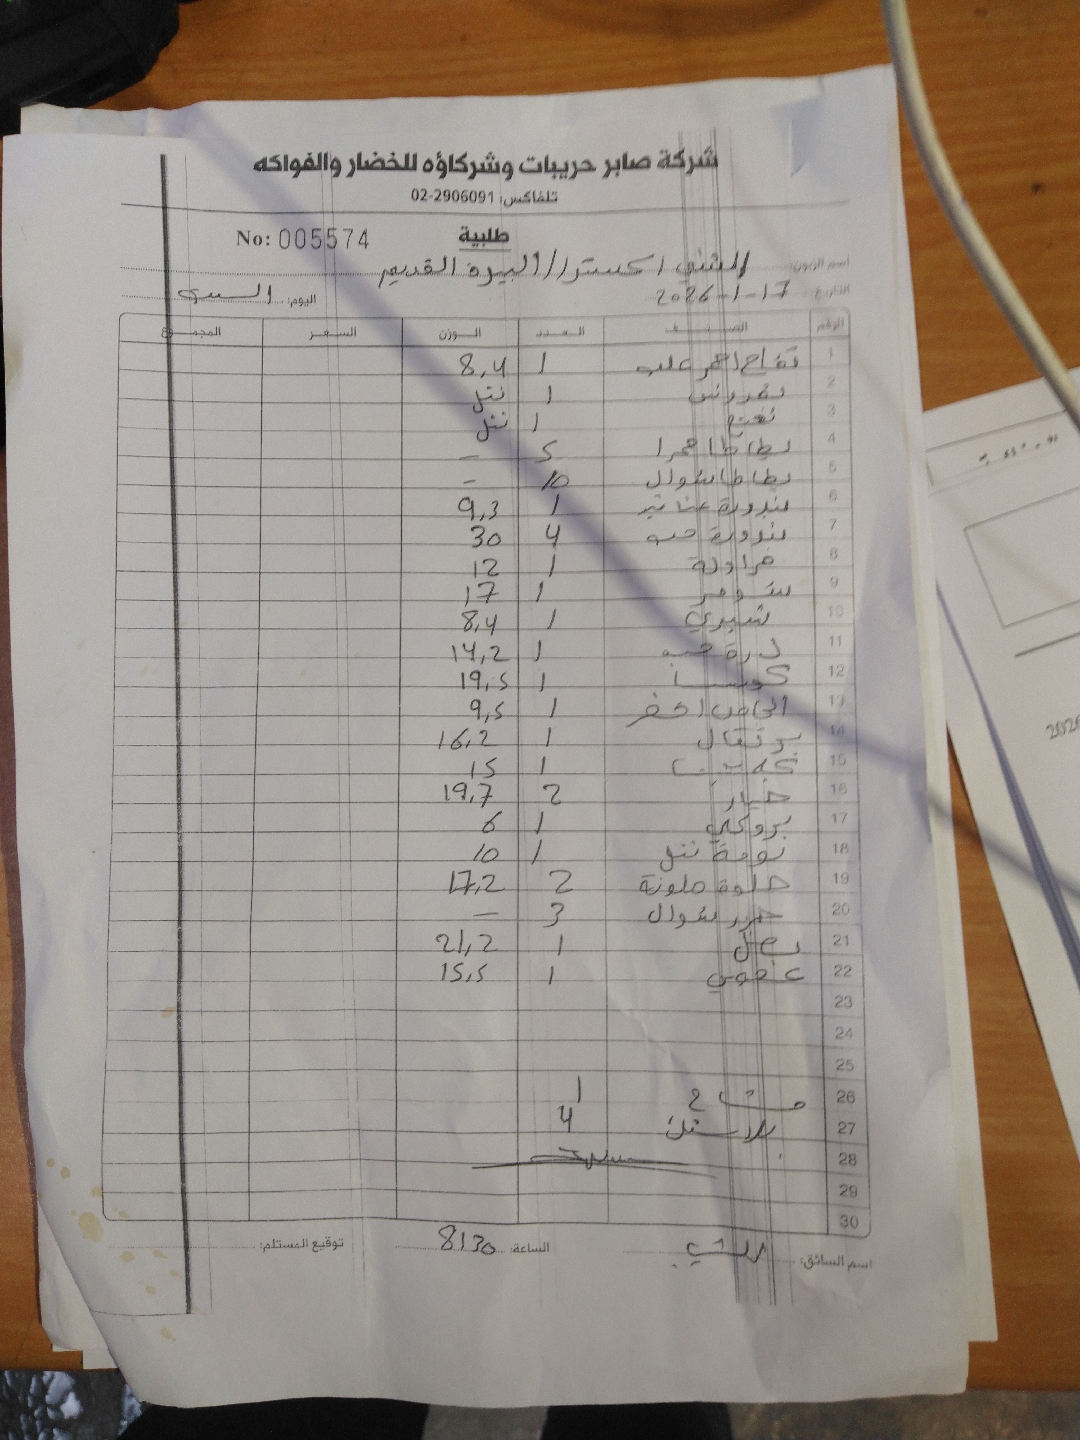 شركة صابر حريبات وشركاؤه للخضار والفواكه
تلفاكس: 02-2906091
طلبية No: 005574
اسم الزبون: المثنى اكسترا // البيرة القديم
التاريخ 2026-1-17 اليوم: السبت
الرقم الصنف العدد الوزن السعر المجموع
1 تفاح احمر علب 1 8,4
2 بقدونس 1 نتل
3 نعنع 1 نتل
4 بطاطا حمرا 5 -
5 بطاطا شوال 10 -
6 بندورة عناقيد 1 9,3
7 بندورة حب 4 30
8 فراولة 1 12
9 شومر 1 17
10 شيري 1 8,4
11 ذرة حب 1 14,2
12 كوسا 1 19,5
13 اجاص اخضر 1 9,5
14 برتقال 1 16,2
15 1 15
16 خيار 2 19,7
17 بروكلي 1 6
18 ثومة نتل 1 10
19 حلوة ملونة 2 17,2
20 جزر شوال 3 -
21 بصل 1 21,2
22 1 15,5
23
24
25
26 مشاح 1
27 بلاستك 4
28
29
30
اسم السائق: الساعة: 8:30 توقيع المستلم:
2020